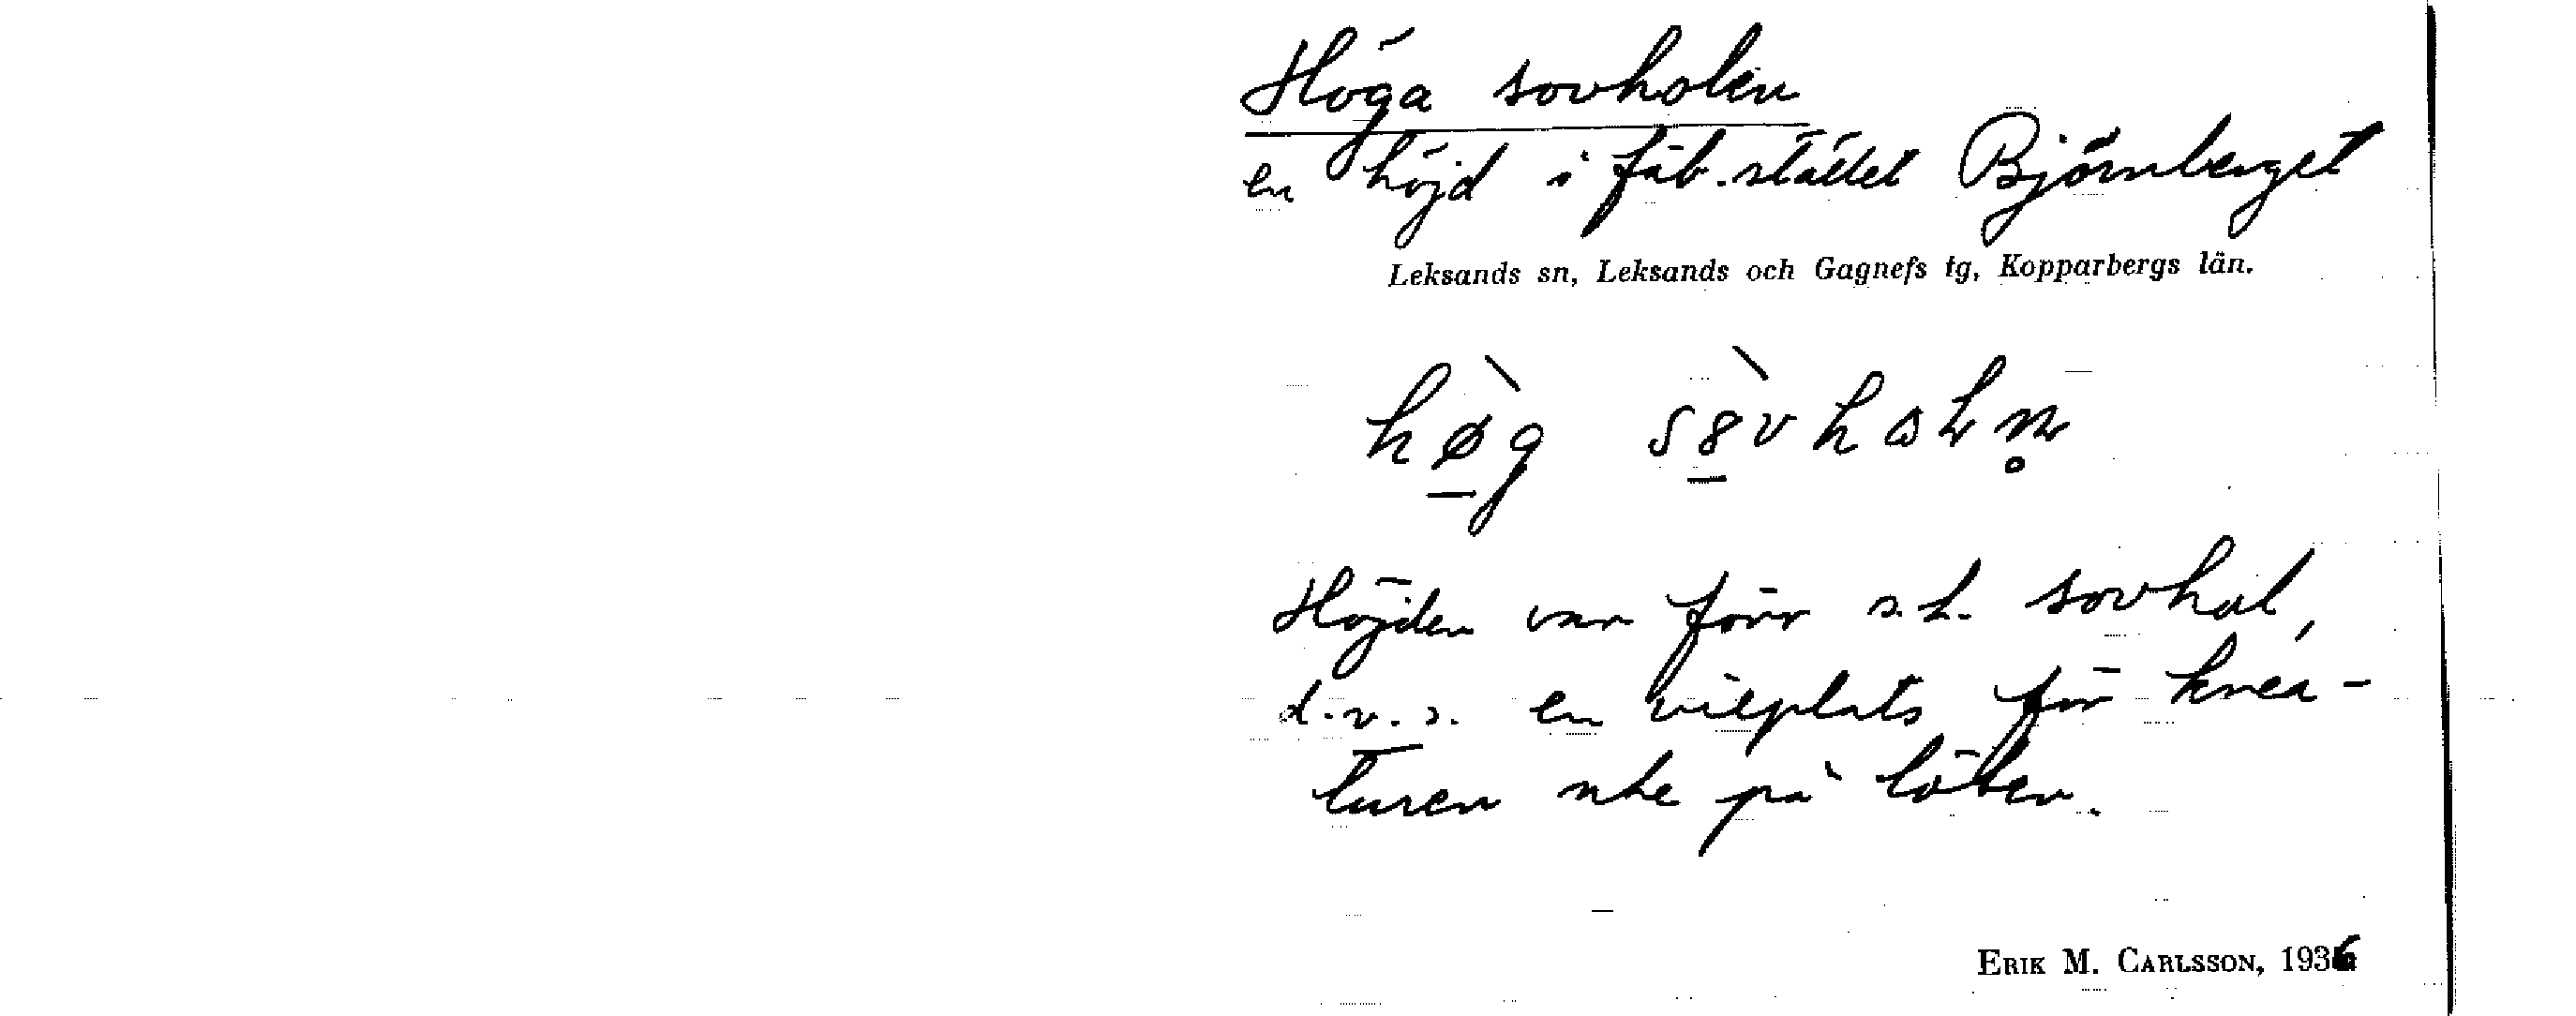 Höga sovholen
en höjd i fäb.stället Björnberget
Leksands sn, Leksands och Gagnefs tg, Kopparbergs län.
Höjden var förr s.k. sovhol,
d.v.s. en viloplats för krea-
turen ute på löten.
ERIK M. CARLSSON, 1936